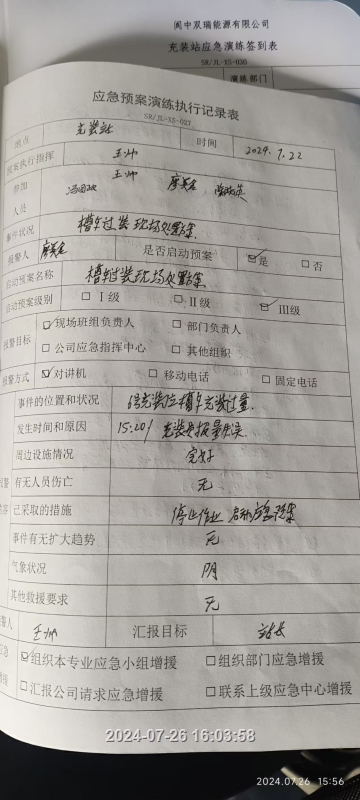 阆中双瑞能源有限公司
充装站应急演练签到表
SR/JL-XS-030
演练部门
应急预案演练执行记录表
SR/JL-XS-027
地点 充装站 时间 2024.7.22
预案执行指挥 王帅
参加 王帅
人员
事件状况 槽车过装现场处置方案
报警人 是否启动预案 ☑是 □否
启动预案名称 槽车过装现场处置方案
启动预案级别 □Ⅰ级 □Ⅱ级 ☑Ⅲ级
报警目标 ☑现场班组负责人 □部门负责人
□公司应急指挥中心 □其他组织
报警方式 ☑对讲机 □移动电话 □固定电话
事件的位置和状况 6号充装位槽车充装过量
发生时间和原因 15:20/ 充装
周边设施情况 完好
有无人员伤亡 无
已采取的措施 停止作业 启动应急预案
事件有无扩大趋势 无
气象状况 阴
其他救援要求 无
王帅 汇报目标 站长
☑组织本专业应急小组增援 □组织部门应急增援
□汇报公司请求应急增援 □联系上级应急中心增援
2024-07-26 16:03:58
2024.07.26 15:56